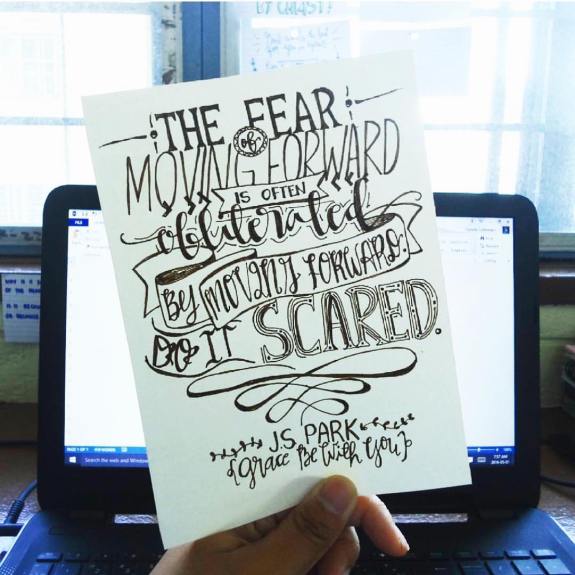 THE FEAR
of
MOVING FORWARD
IS OFTEN
obliterated
BY MOVING FORWARD.
DO IT SCARED.
J.S. PARK
{Grace Be With You}
BY CHRIST?
FILE
Search the web and Windows
7:57 AM